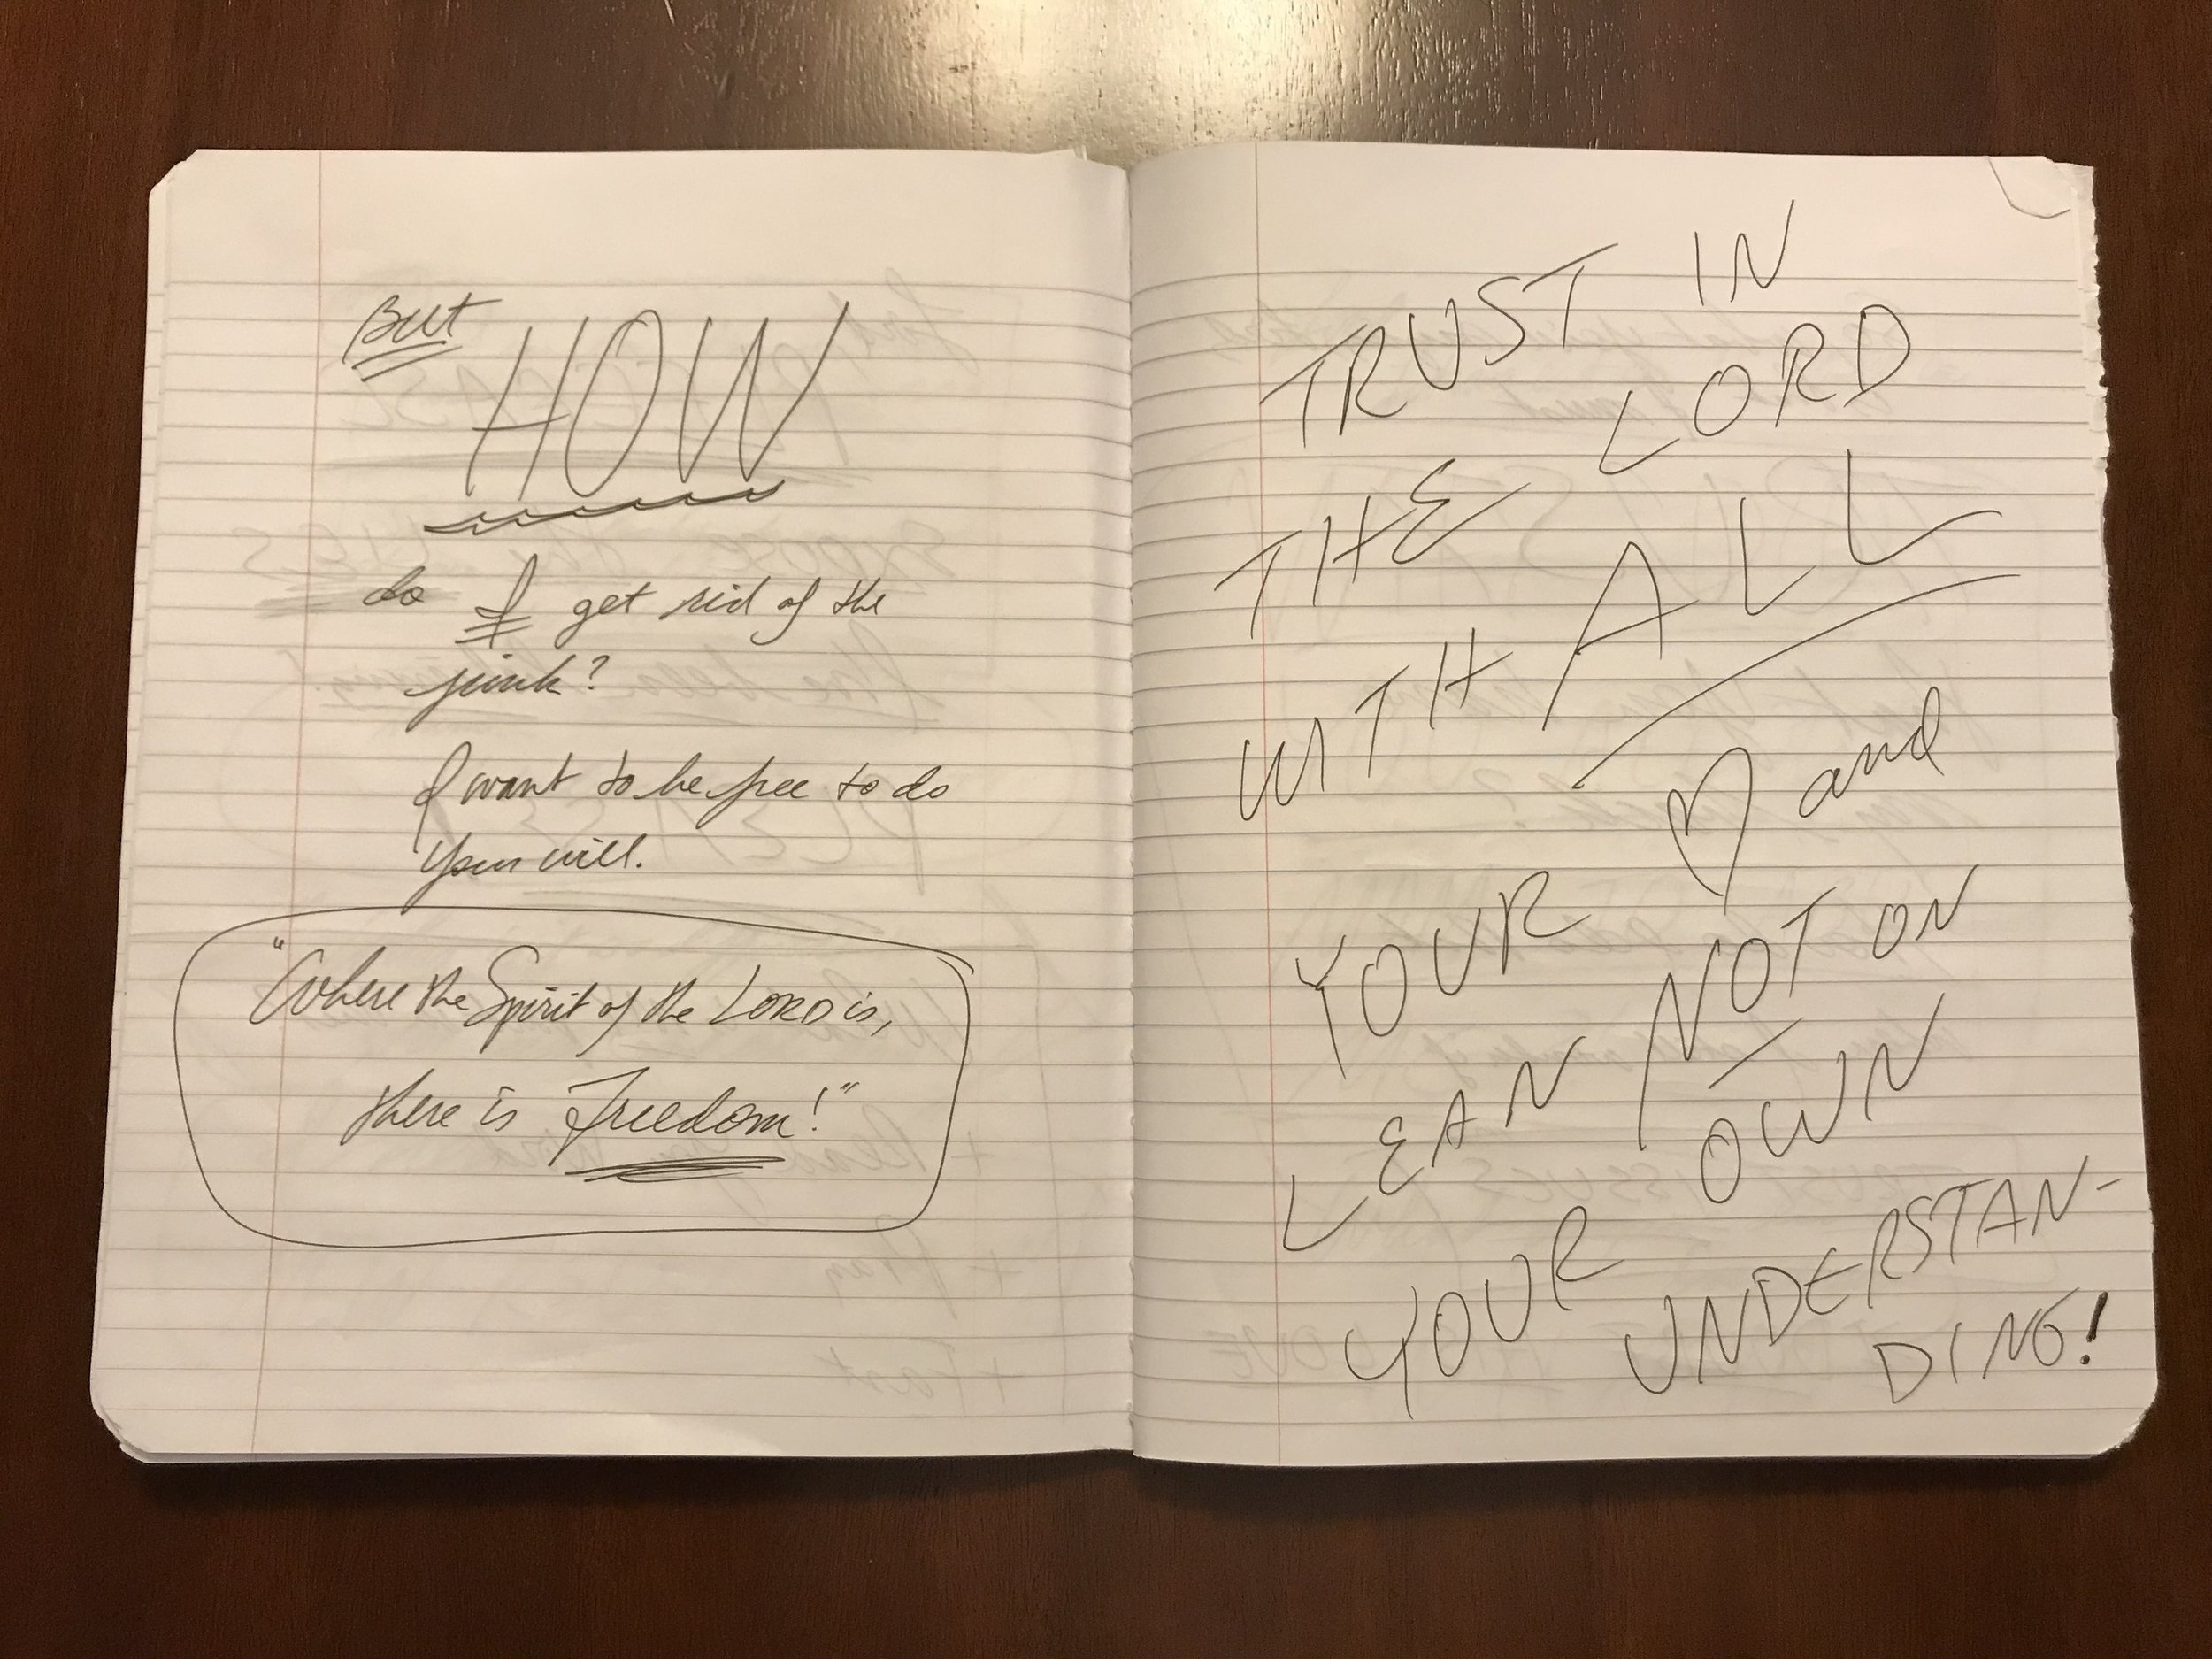 But HOW
do I get rid of the
junk?
I want to be free to do
Your will.
"Where the Spirit of the LORD is,
there is Freedom!"
TRUST IN
THE LORD
WITH ALL
YOUR ♡ and
LEAN NOT ON
YOUR OWN
UNDERSTAN-
DING!